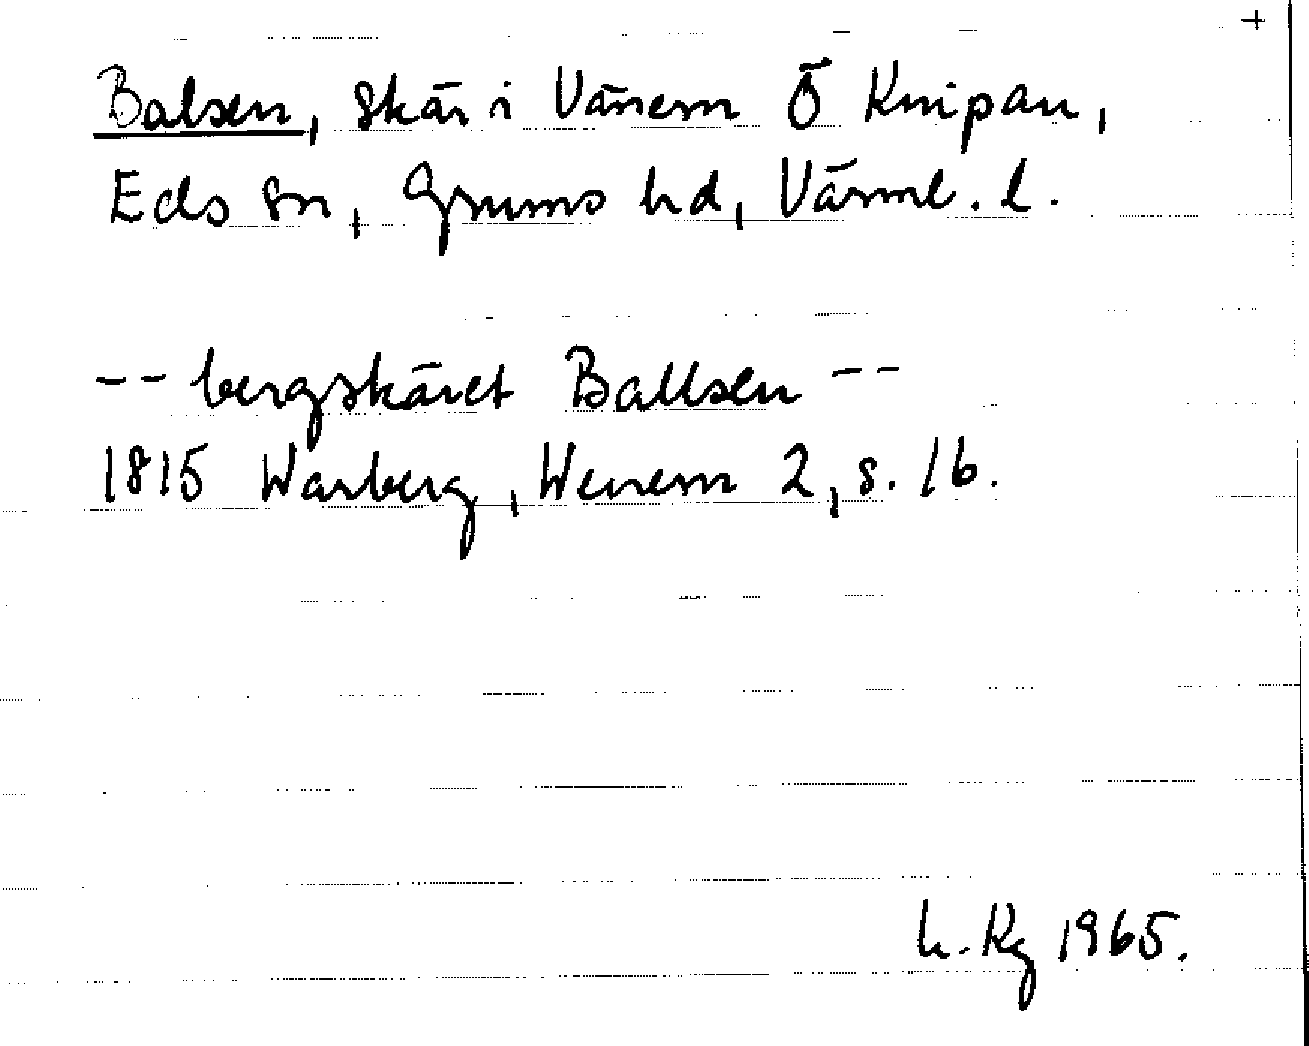 +
Balsen, skär i Vänern Ö Knipan,
Eds sn, Grums hd, Värml. l.
-- bergskäret Ballsen --
1815 Warberg, Wenern 2, s. 16.
L. Rg 1965.